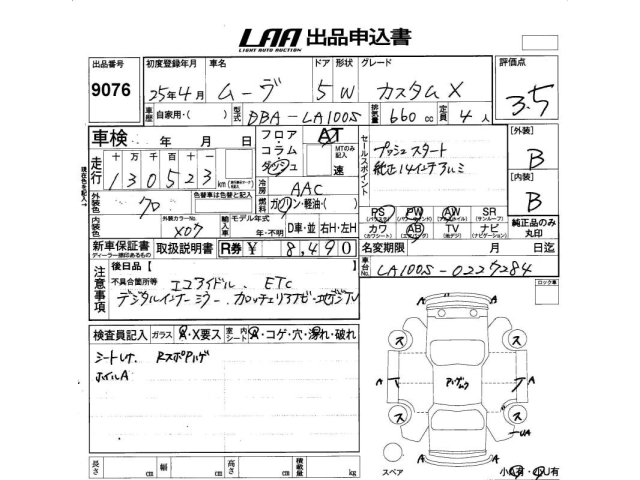 LAA 出品申込書
LIGHT AUTO AUCTION
出品番号 初度登録年月 車名 ドア 形状 グレード 評価点
9076 25年4月 ムーヴ 5 W カスタムX 3.5
車歴 自家用・( ) 型式 DBA-LA100S 排気量 660 cc 定員 4 人
車検 年 月 日
フロア・コラム・ダッシュ AT
MTのみ記入 速
セールスポイント
プッシュスタート
純正14インチアルミ
[外装] B
[内装] B
走行 十万千百十
130523 km
冷房 AAC
外装色 クロ 色替車は色替と記入
燃料 ガソリン・軽油・( )
PS PW AW SR
(パワステ) (サンルーフ)
カワ AB TV ナビ
(カワシート) (エアバッグ) (地デジ) (ナビゲーション)
純正品のみ丸印
外装カラーNo. X07
輸入車 モデル年式 年・不明 D車・並 右H・左H
新車保証書 取扱説明書 R券 ¥ 8,490
ディーラー捺印あるもの
名変期限 月 日迄
車台No. LA100S-0227284
注意事項
後日品【
不具合箇所等 エコアイドル. ETC
デジタルインナーミラー. カロッツェリアナビ・地デジTV
ロック車
検査員記入 ガラス A・X要ス 室内シート A・コゲ・穴・汚れ・破れ
シートレザ. Rスポアハゲ
ホイルA
A A
ス ス
A A
ス ス
UA
A A
スペア
小A有・小U有
長さ cm 幅 cm 高さ cm 積載量 kg